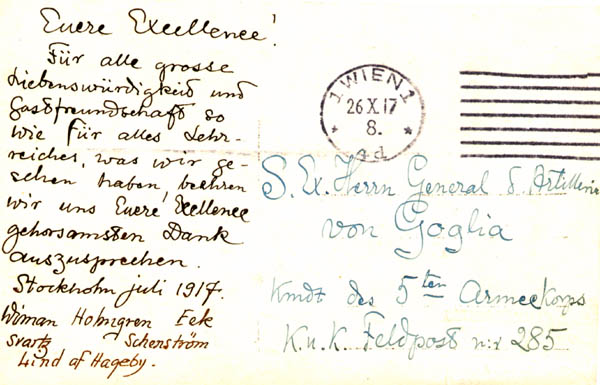 Euere Excellence!
Für alle grosse
Liebenswürdigkeid und
Gastfreundschaft so
wie für alles Lehr-
reiches, was wir ge-
sehen haben, beehren
wir uns Euere Excellence
gehorsamsten Dank
auszusprechen.
Stockholm juli 1917.
Wiman Holmgren Eek
Svartz Schenström
Lind af Hageby.
1 WIEN 1
26 X. 17
8.
* 4d *
S. Ex. Herrn General d. Artillerie
von Goglia
Kmdt des 5ten Armeekorps
K.u.K. Feldpost n:r 285